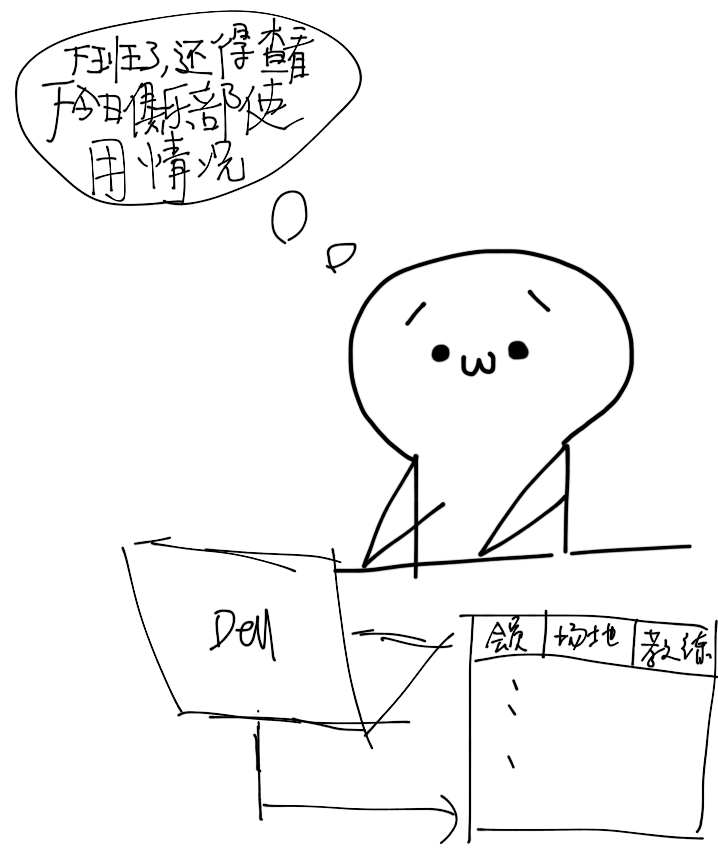 下班了,还得查看
下今日俱乐部使
用情况
Dell
会员 场地 教练